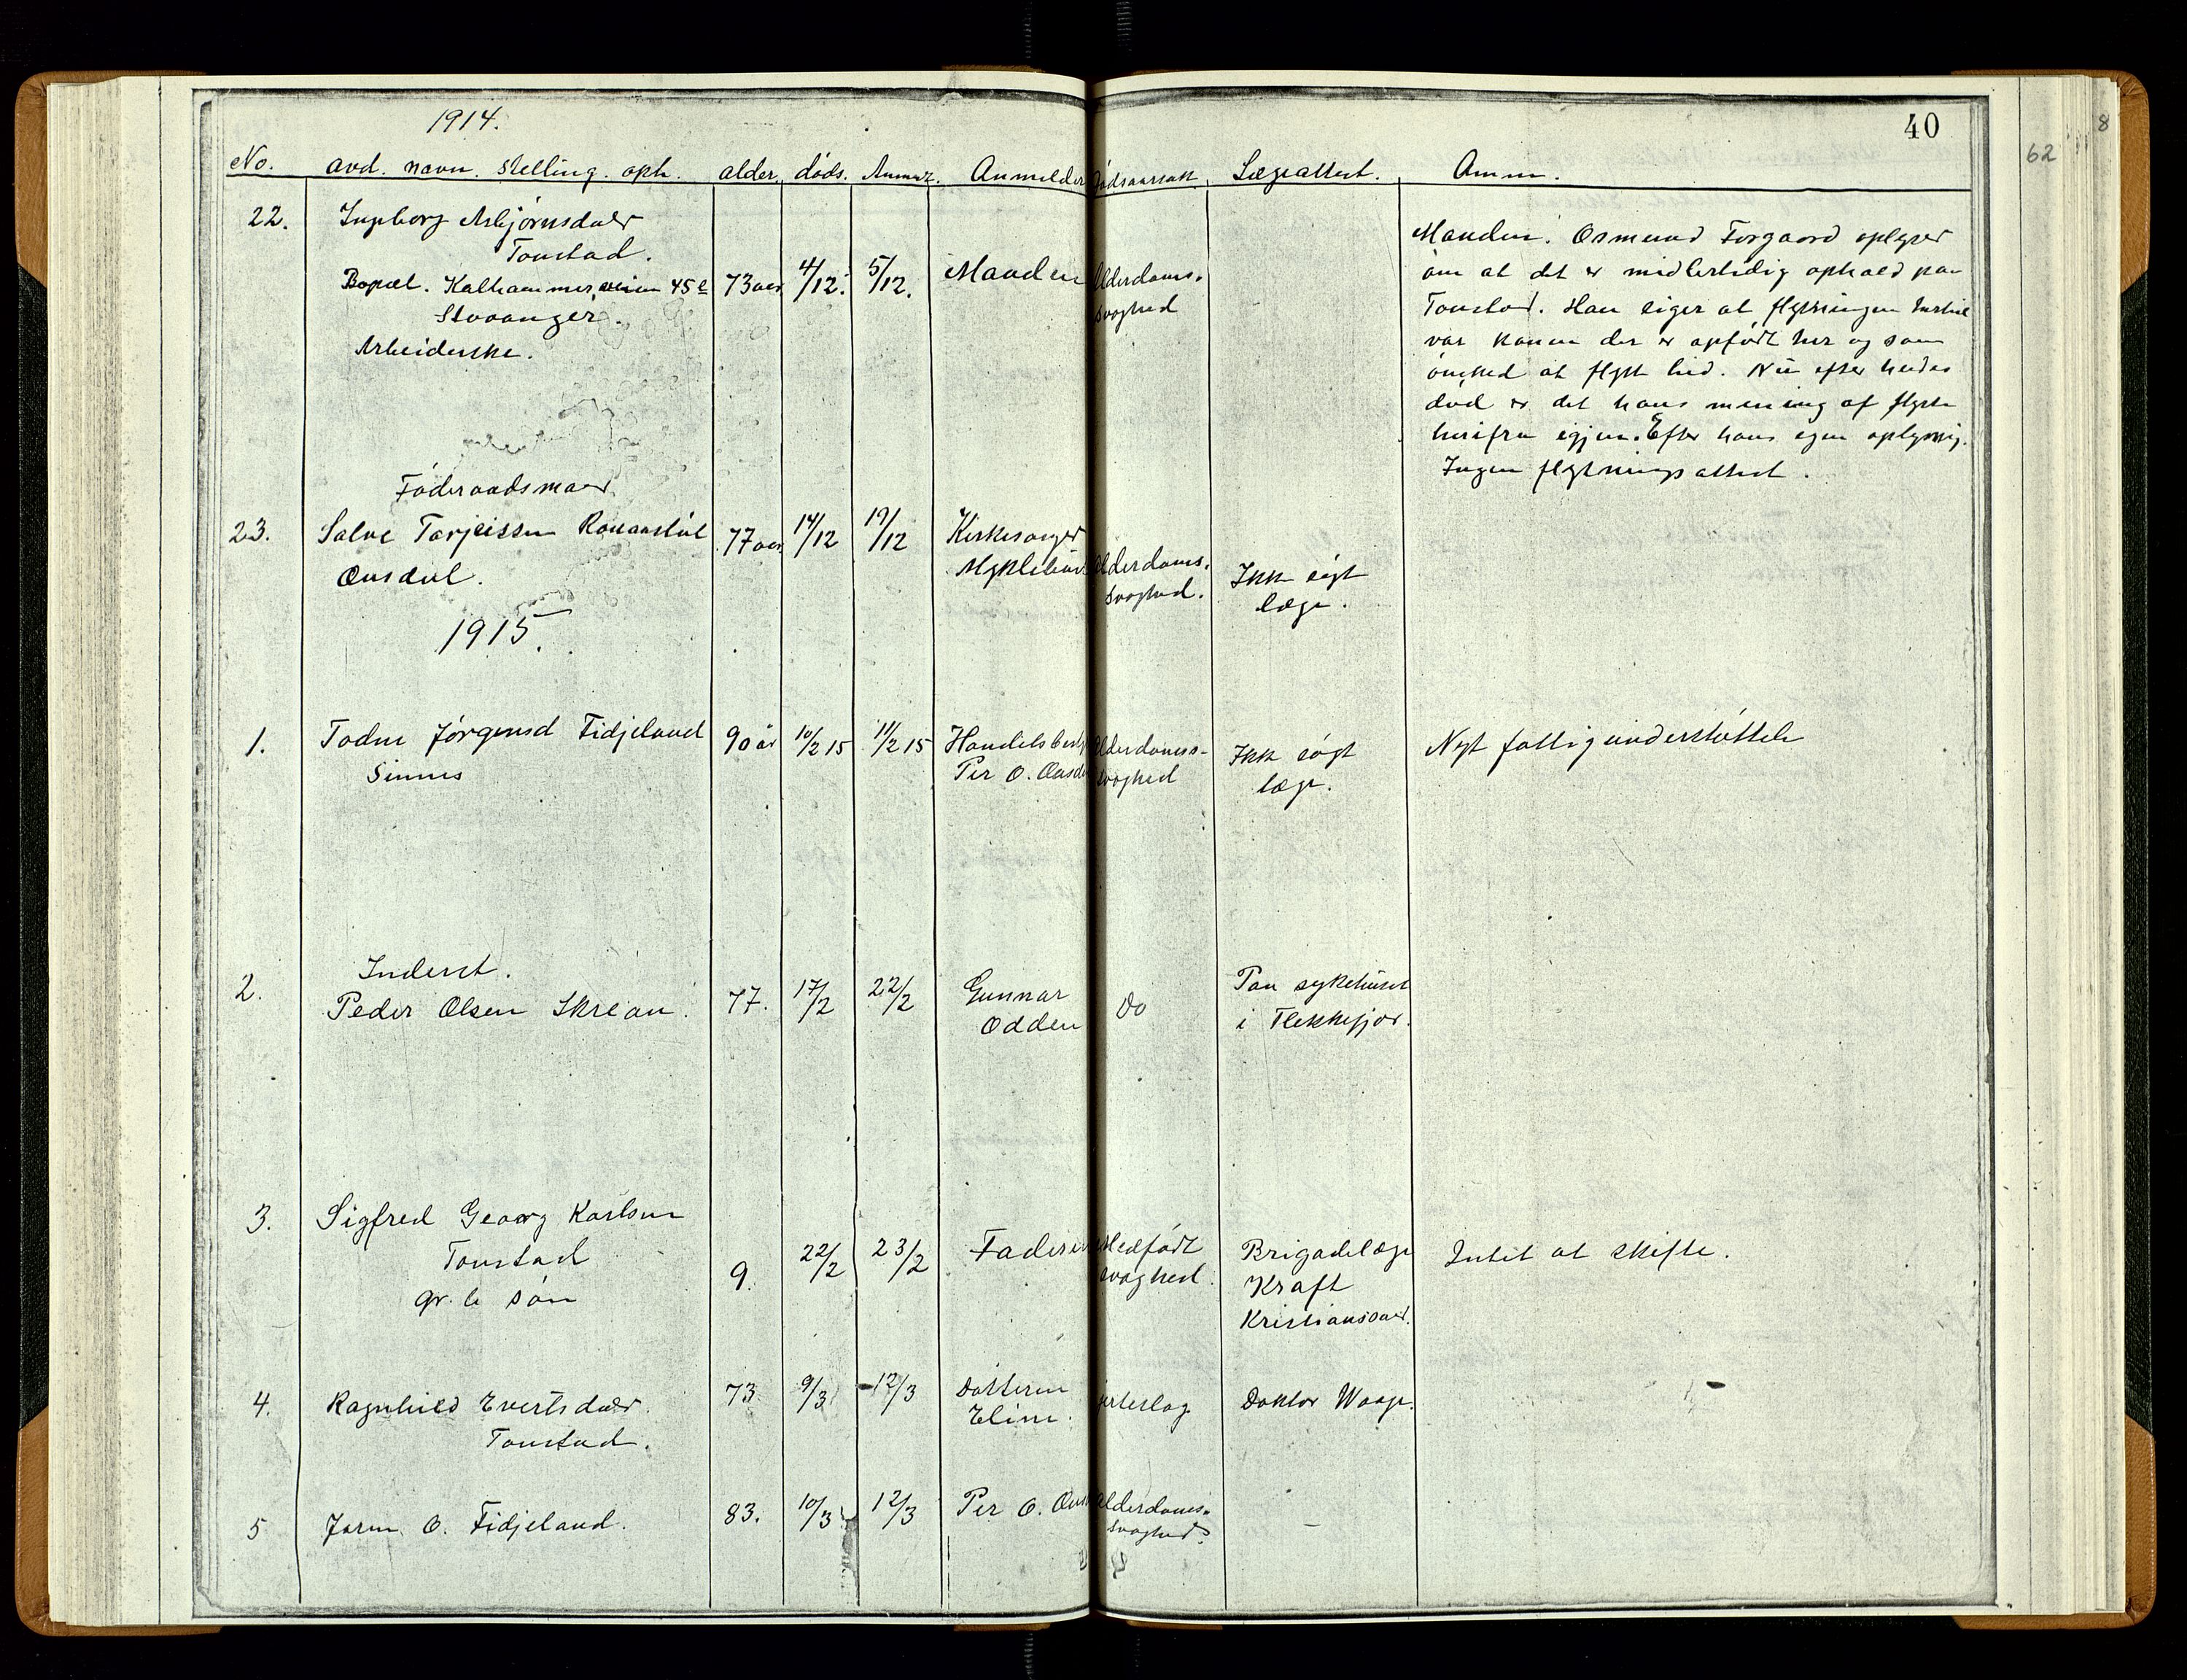 1914.
40
62
8
No. avd. navn. stelling. oph. alder. døds. Anmeldelser Dødsaarsak. Lægeattest. Anm.
22. Ingborg Asbjørnsdatr
Tonstad.
Bopæl. Kalhammerveien 45 e 73 aar 4/12. 5/12. Manden Alderdoms-
svaghed
Stavanger.
Arbeiderske.
Manden. Osmund Forgaard oplyser
om at det er midlertidig ophold paa
Tonstad. Han siger at flytningen hertil
var konen der er opfødt her og som
ønsked at flytte hid. Nu efter hendes
død er det hans mening at flytte
herifra igjen. Efter hans egen oplysnig.
Ingen flytningsattest.
Føderaadsmand
23. Salve Tarjeissen 77 aar 14/12 19/12 Kirkesanger
Ousdal. Myklebust Alderdoms-
svaghed. Ikke søgt
læge.
1915.
1. Todne Jørgensd Fidjeland 90 år 10/2 15 11/2 15 Handelsbest Alderdoms- Ikke søgt Nyt fattigunderstøttelse
Sinnes Per O. Ousda svaghed læge.
Inderst.
2. Peder Olsen Skrean. 77. 17/2 22/2 Gunnar Odden do Paa sykehuset
i Flekkefjor.
3. Sigfred Georg Karlsen
Tonstad 9. 22/2 23/2 Faderen Medfødt Brigadelæge Intet at skifte.
gr. br søn svaghed. Kraft
Kristianssand.
4. Ragnhild Evertsdatr. 73 9/3 12/3 Datteren hjerteslag Doktor Waage.
Tonstad. Eline.
5 Joren O. Fidjeland. 83. 10/3 12/3 Per O. Ous Alderdoms- –
svaghed.